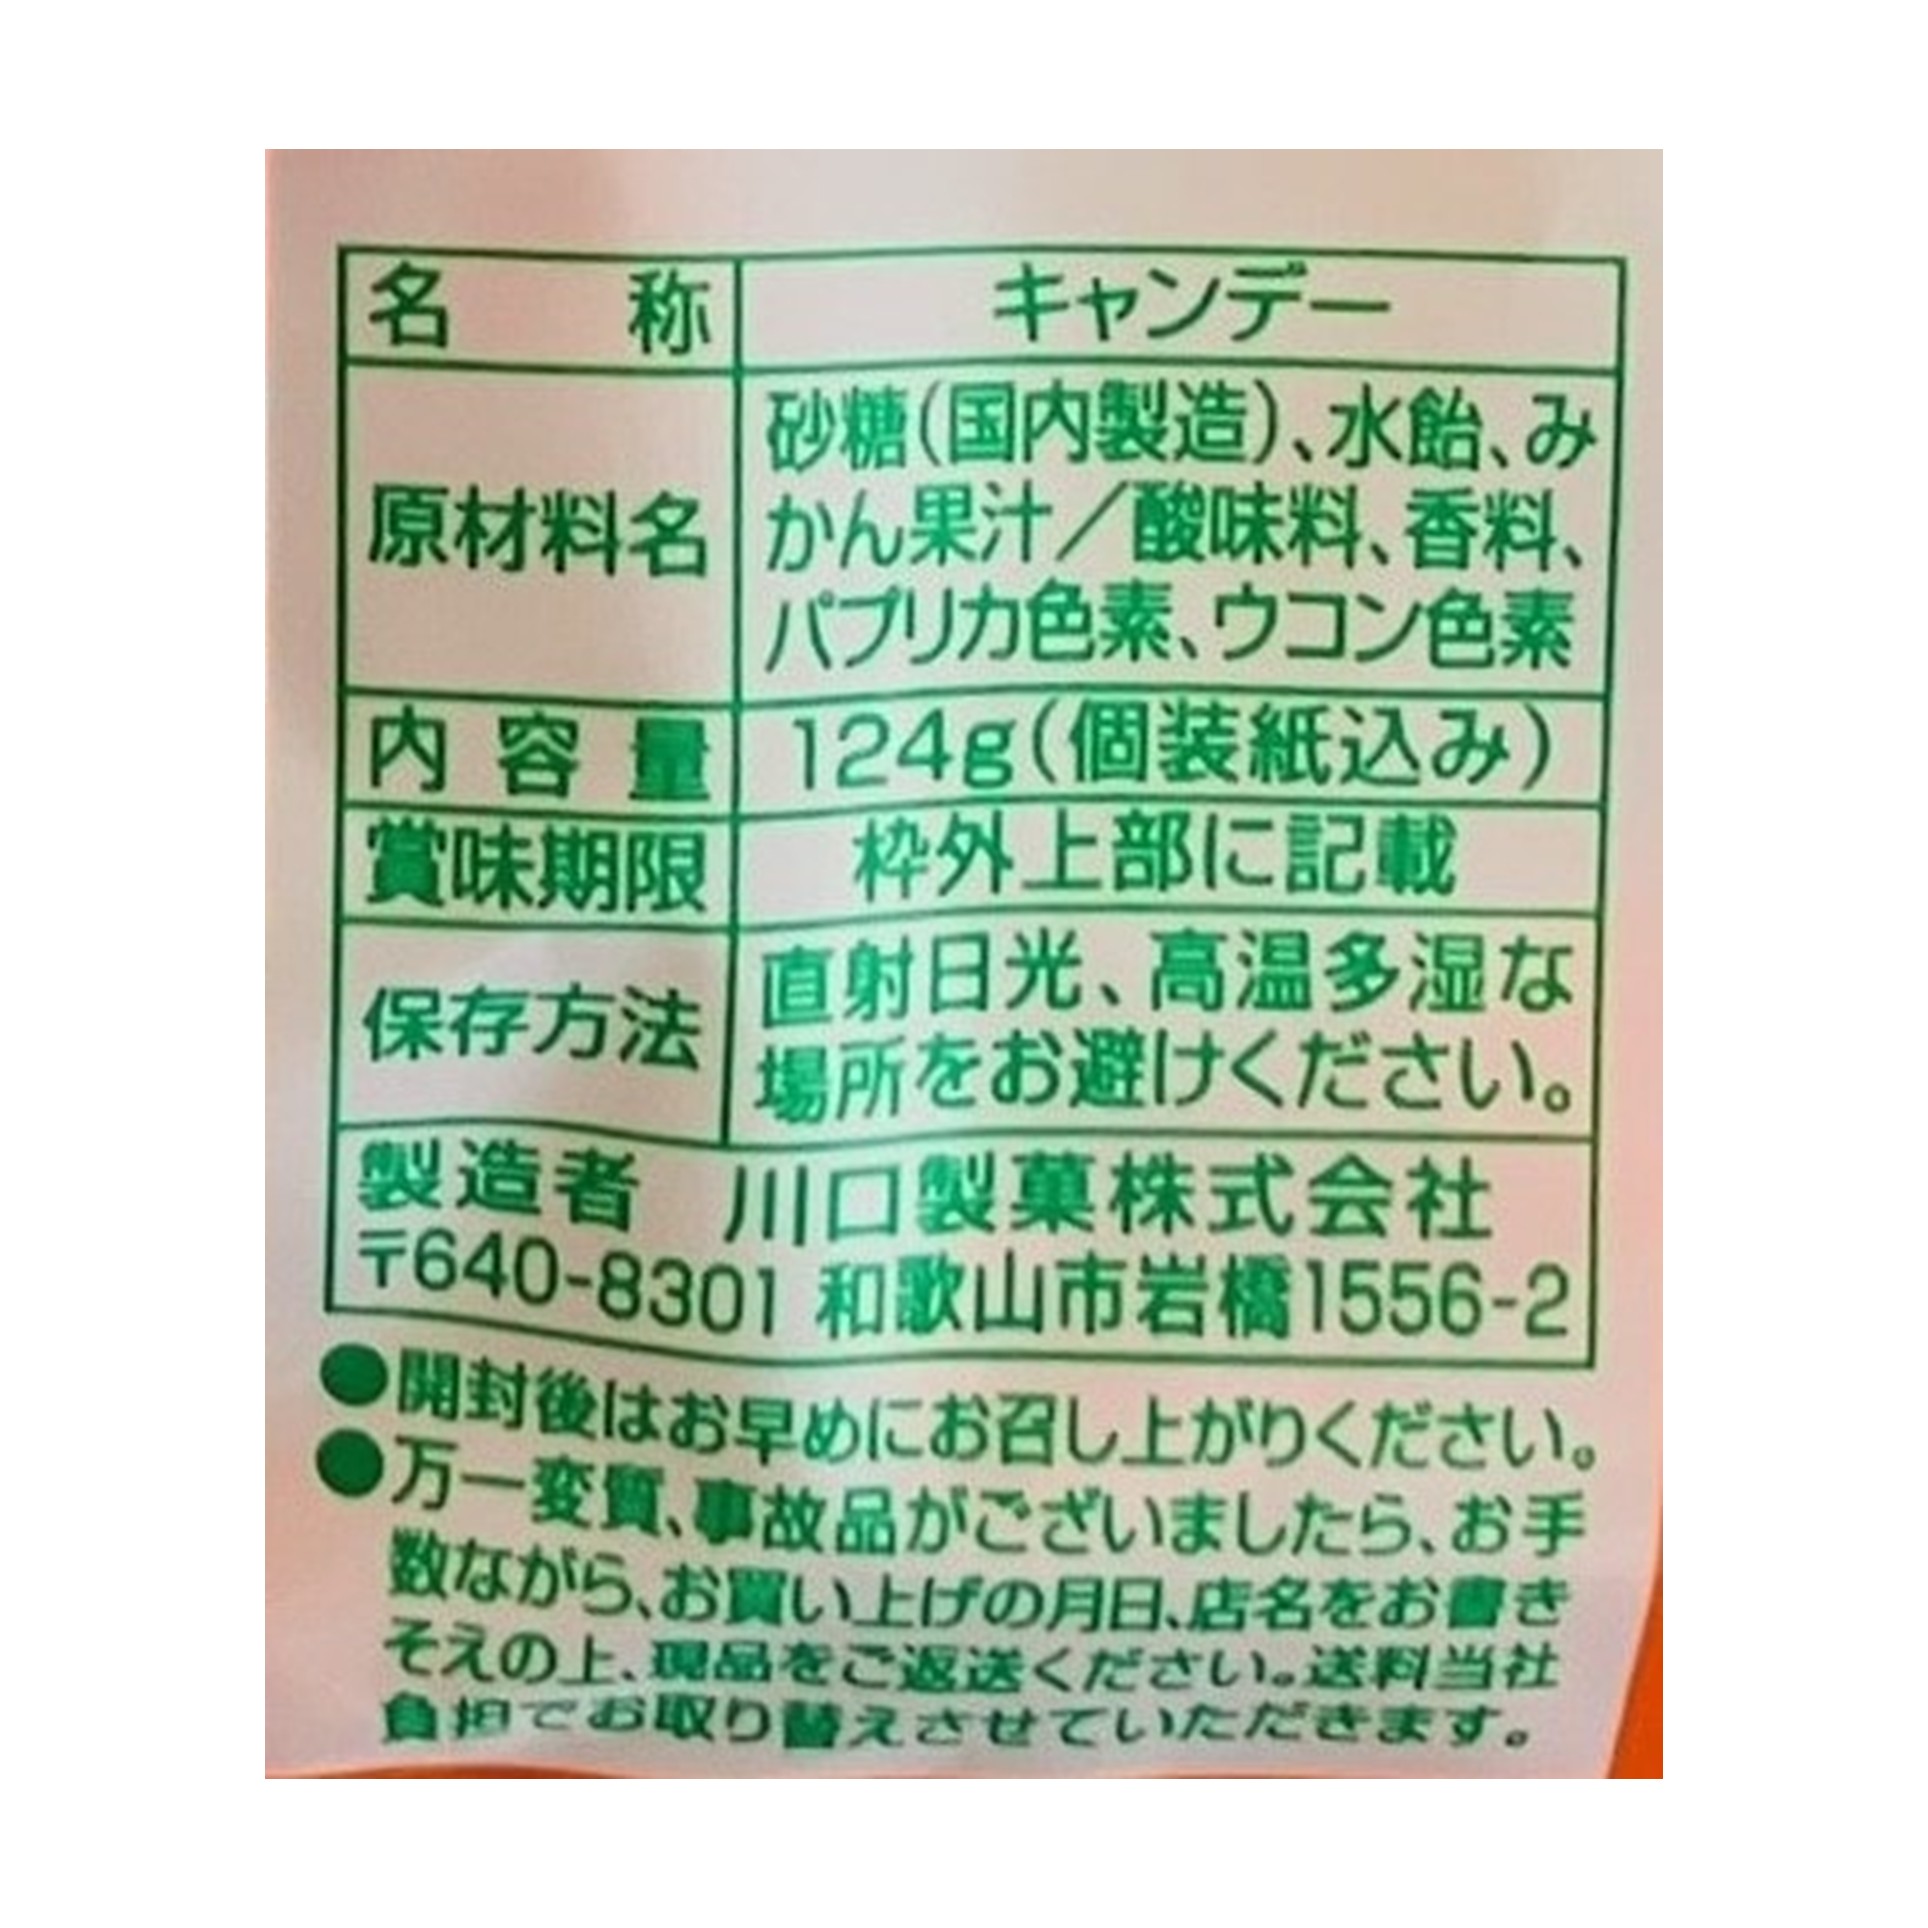 名称 キャンデー
原材料名 砂糖(国内製造)、水飴、み
かん果汁/酸味料、香料、
パプリカ色素、ウコン色素
内容量 124g(個装紙込み)
賞味期限 枠外上部に記載
保存方法 直射日光、高温多湿な
場所をお避けください。
製造者 川口製菓株式会社
〒640-8301 和歌山市岩橋1556-2
●開封後はお早めにお召し上がりください。
●万一変質、事故品がございましたら、お手
数ながら、お買い上げの月日、店名をお書き
そえの上、現品をご返送ください。送料当社
負担でお取り替えさせていただきます。